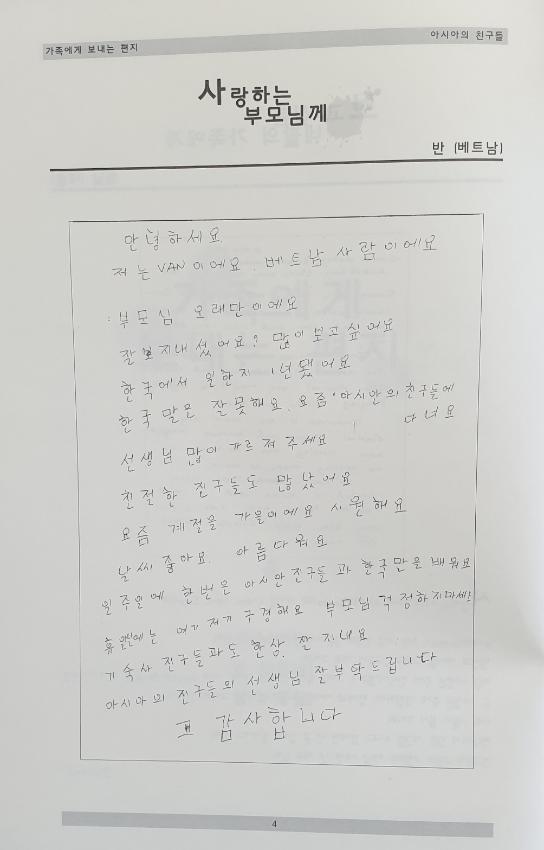 가족에게 보내는 편지
아시아의 친구들
사랑하는
부모님께
반 (베트남)
안녕하세요.
저는 VAN이에요. 베트남 사람이에요
부모님 오래만이에요
잘 지내셨어요? 많이보고싶어요
한국에서 일한지 1년됐어요
한국말은 잘못해요. 요즘 아시안의 친구들에
다녀요
선생님 많이 가르쳐주세요
친절한 친구들도 많났어요
요즘 계절을 가을이에요 시원해요
날씨 좋아요. 아름다워요
일주일에 한번은 아시안친구들과 한국만을 배워요
휴일에는 여기저기 구경해요 부모님 걱정하지마세요
기숙사 친구들과도 항상 잘 지내요
아시아의 친구들의 선생님 잘부탁드립니다
감사합니다
4